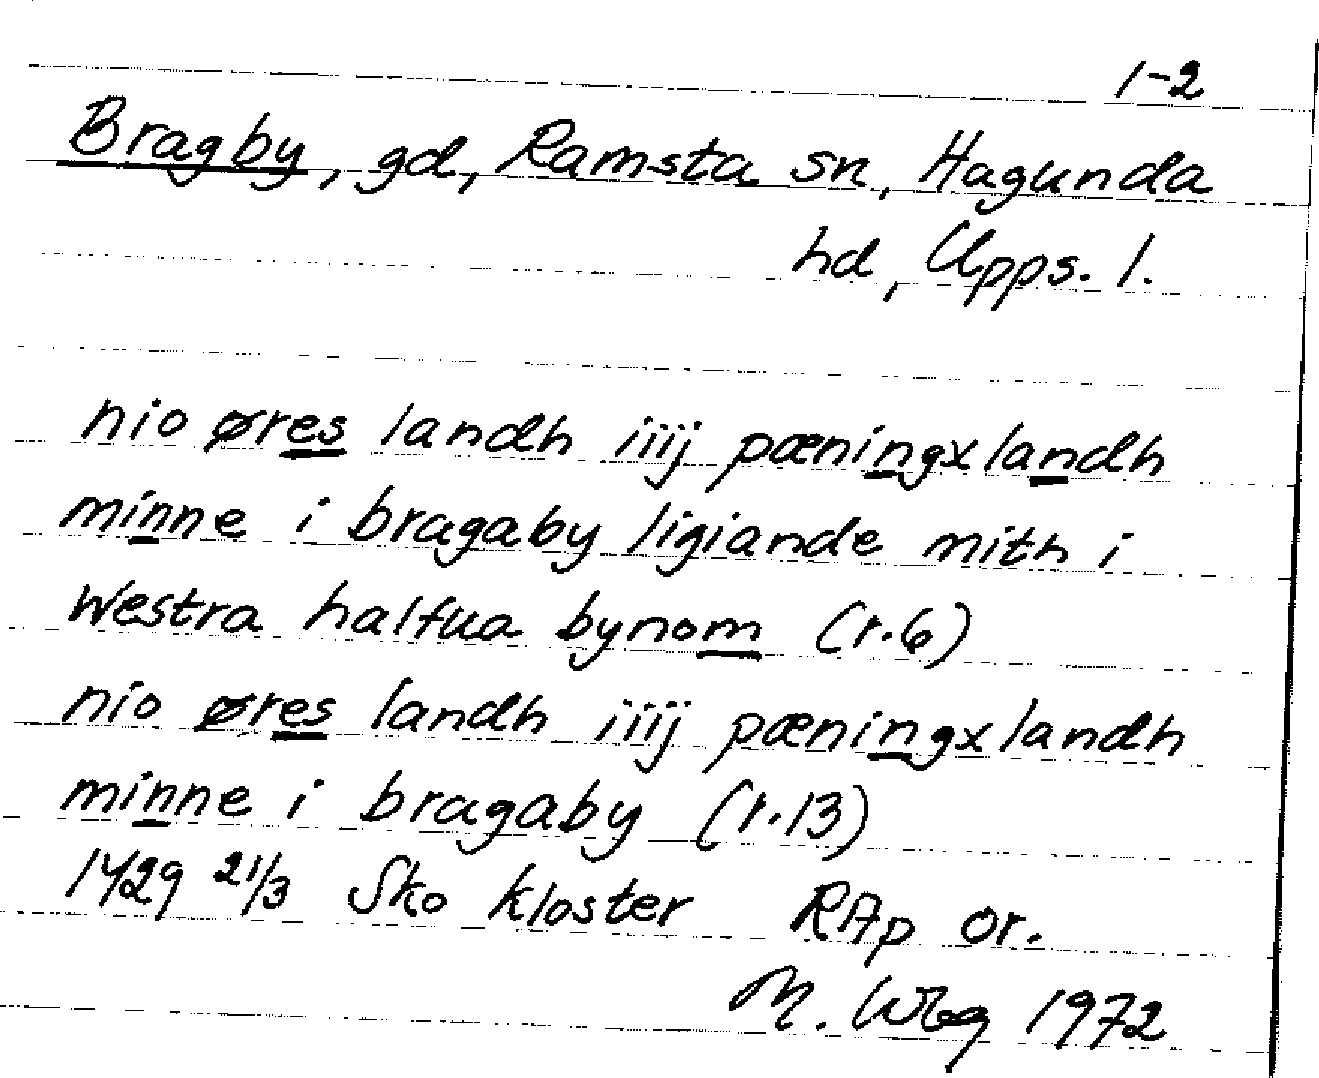 1-2
Bragby, gd, Ramsta sn, Hagunda
hd, Upps. l.
nio øres landh iiij pæningxlandh
minne i bragaby ligiande mith i
Westra halfua bynom (r.6)
nio øres landh iiij pæningxlandh
minne i bragaby (r.13)
1429 21/3 Sko kloster RAp or.
M. Wbg 1972